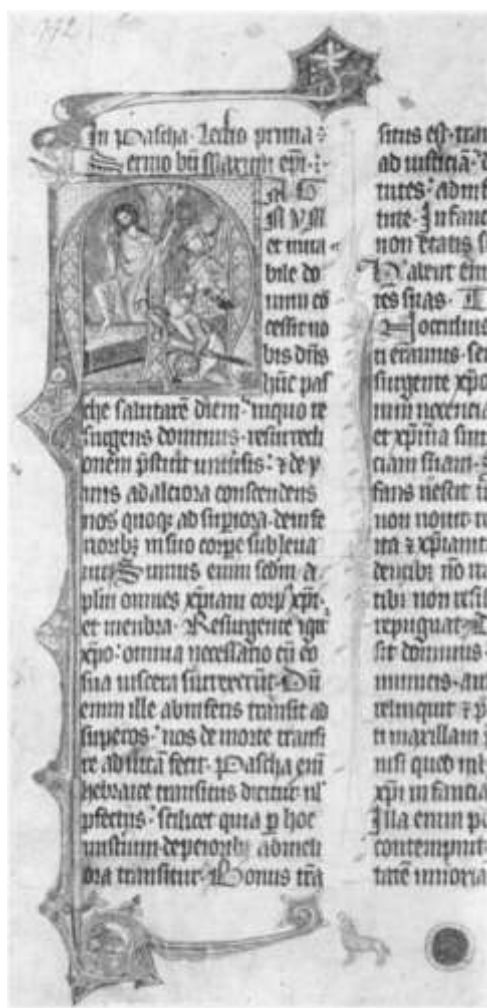 172
In Pascha. Lectio prima:
Sermo bti Maximi epi.
MAG
NVM
et mira
bile do
num co
cessit no
bis dns
hūc pas
che salutarē diem. inquo re
surgens dominus. resurrecti
onem pstitit uniūsis: ⁊ de y
mis ad alciora conscendens
nos quoqꝫ ad supiora. de infe
rioribꝫ in suo corpe subleua
uit. Sumus enim scdm a
plm omnes xp̄iani corpꝰ xp̄i.
et menbra. Resurgente igit
xp̄o: omnia necessario cū eo
sua uiscera surrexerūt. Dū
enim ille ab inferis transit ad
superos. nos de morte transi
re ad uitā fecit. Pascha enī
hebraice transitus dicitur ul
pfectꝰ. scilicet quia p hoc
misterium de peioribꝫ ad meli
ora transitur. Bonus trā
situs est. tran
ad iusticiā. d
tutes: ad inf
tute. In fanc
non etatis
ualeut
res suas.
H occiduis
ti eramus. se
surgente xp̄o
num nocencia
et xp̄ma sim
ciam suam.
fans nescit
non nouit
ita ⁊ xp̄ianit
dentibꝫ nō
tibi non resis
repugnat.
sit dominus.
inimicis. au
relinquit ⁊ p
ti maxillam
nisi quod
xp̄i infancia
Illa enim p
contempnit
tatē